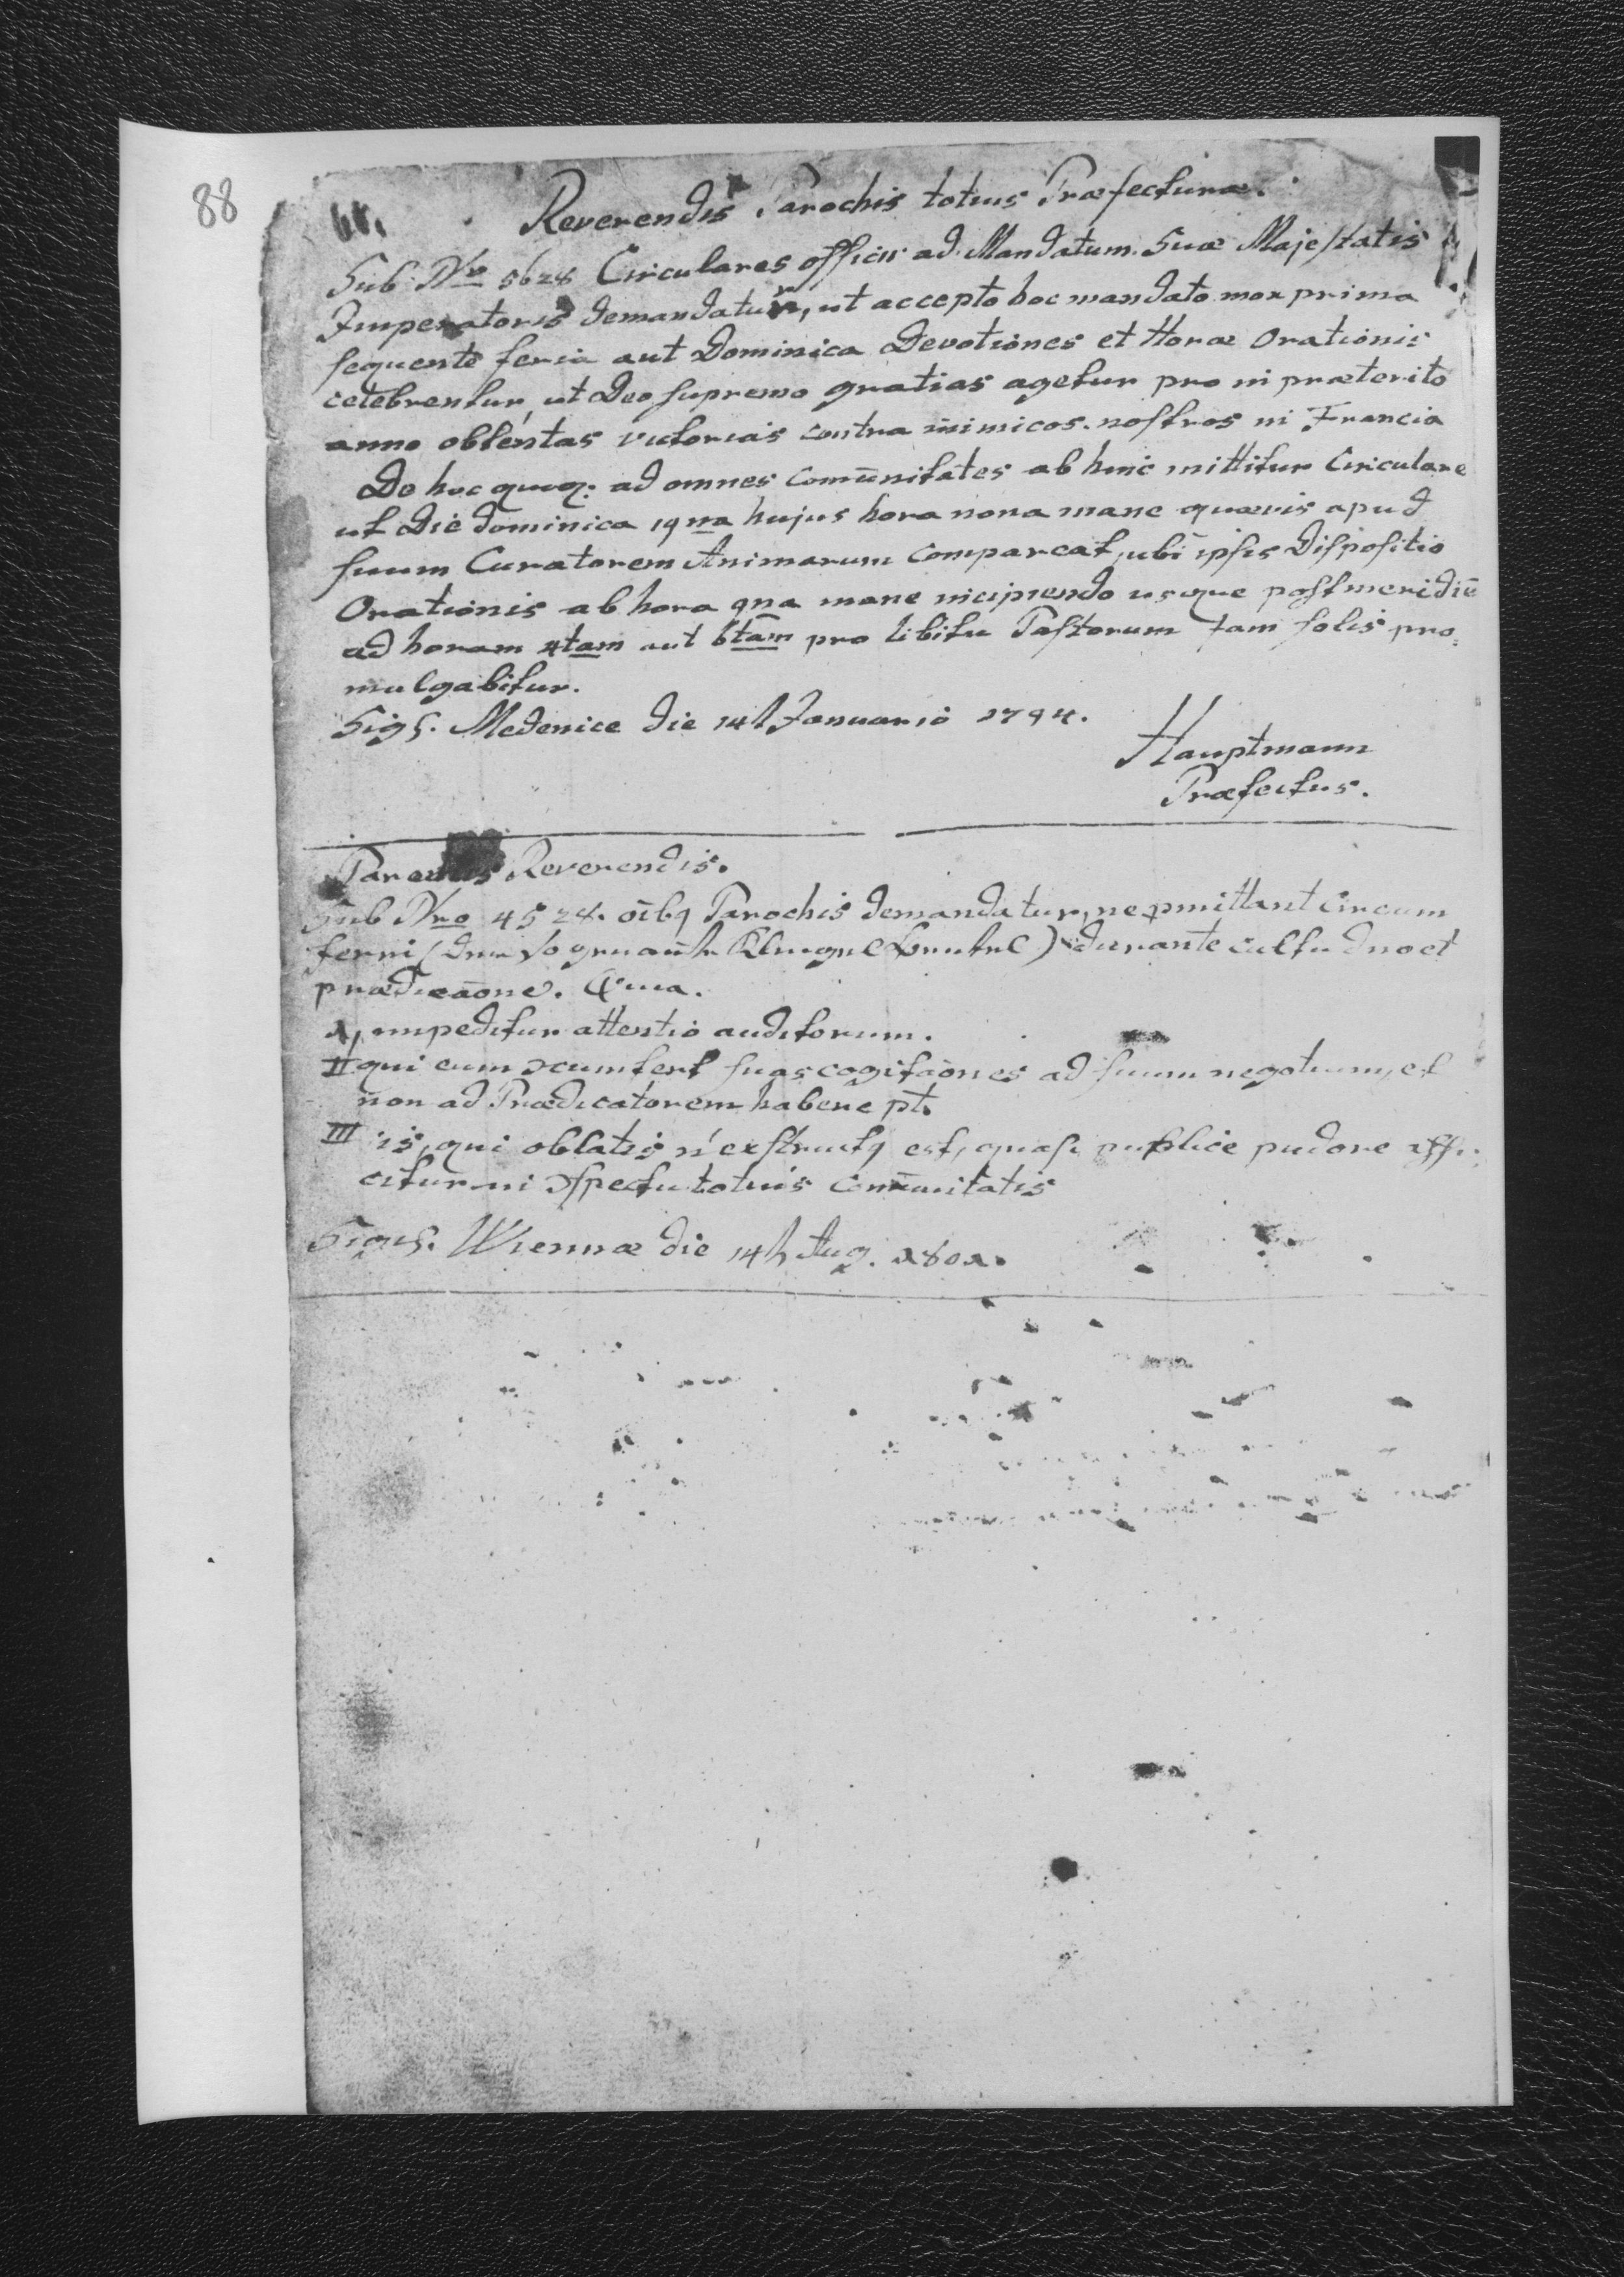 88
Reverendis Parochis totius Præfecturæ.
Sub Nro 5628 Circulares officii ad Mandatum Suæ Majestatis
Imperatoris demandatur, ut accepto hoc mandato mox prima
sequente feria aut Dominica Devotiones et Horæ Orationis
celebrentur, ut Deo supremo gratias agetur pro in præterito
anno obtentas victorias contra inimicos nostros in Francia
De hoc quoq: ad omnes Comūnitates ab hinc mittitur Circulare
ut Die dominica 19na hujus hora nona mane quævis apud
suum Curatorem Animarum compareat, ubi ipsis Dispositio
Orationis ab hora 9na mane incipiendo usque postmeridiē
ad horam 4tam aut 6tam pro libitu Pastorum tam solis pro=
mulgabitur.
Sigs. Medenice die 14t Januario 1794.
Hauptmann
Præfectus.
Reverendis.
Sub Nro 4528. oībq Parochis demandatur, ne pmittant Circum
ferri durante cultu dno et
prædicāone.
1, impeditur attentio auditorum.
II qui eum ɔcumfert suas cogitāones ad suum negotium, et
non ad Prædicatorem habere pt.
III is, qui oblatis n' exstructq est, quasi publice pudore affi:
citur in ɔspectu totius Comūnitatis
Signs. Wiennæ die 14t Aug. 1801.